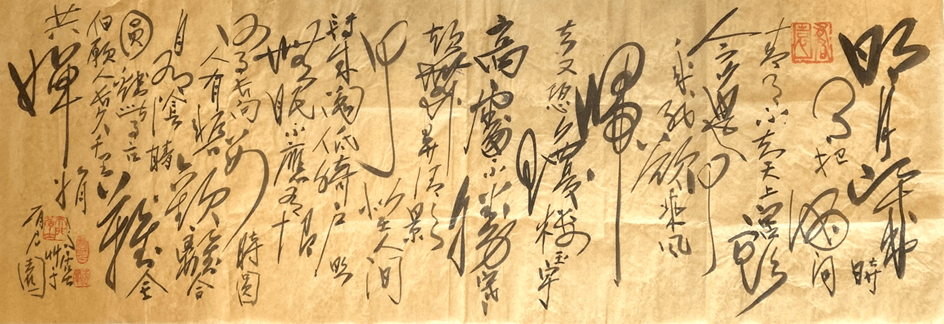 明月幾時
有把酒問
青天不知天上宮闕
今夕是何年
我欲乘風
歸
去又恐瓊樓玉宇
高處不勝寒
起舞弄清影
何似在人間
轉朱閣低綺戶照
無眠不應有恨
何事長向別時圓
人有悲歡離合
月有陰晴
圓缺此事古難全
但願人長久千里
共嬋娟